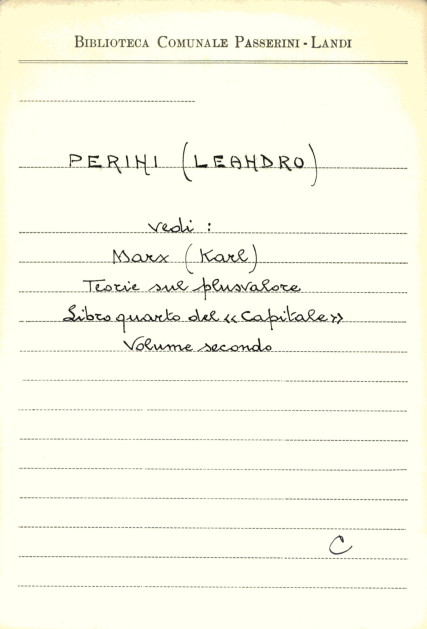 BIBLIOTECA COMUNALE PASSERINI - LANDI
PERINI (LEANDRO)
vedi :
Marx (Karl)
Teorie sul plusvalore
Libro quarto del «Capitale»
Volume secondo
C